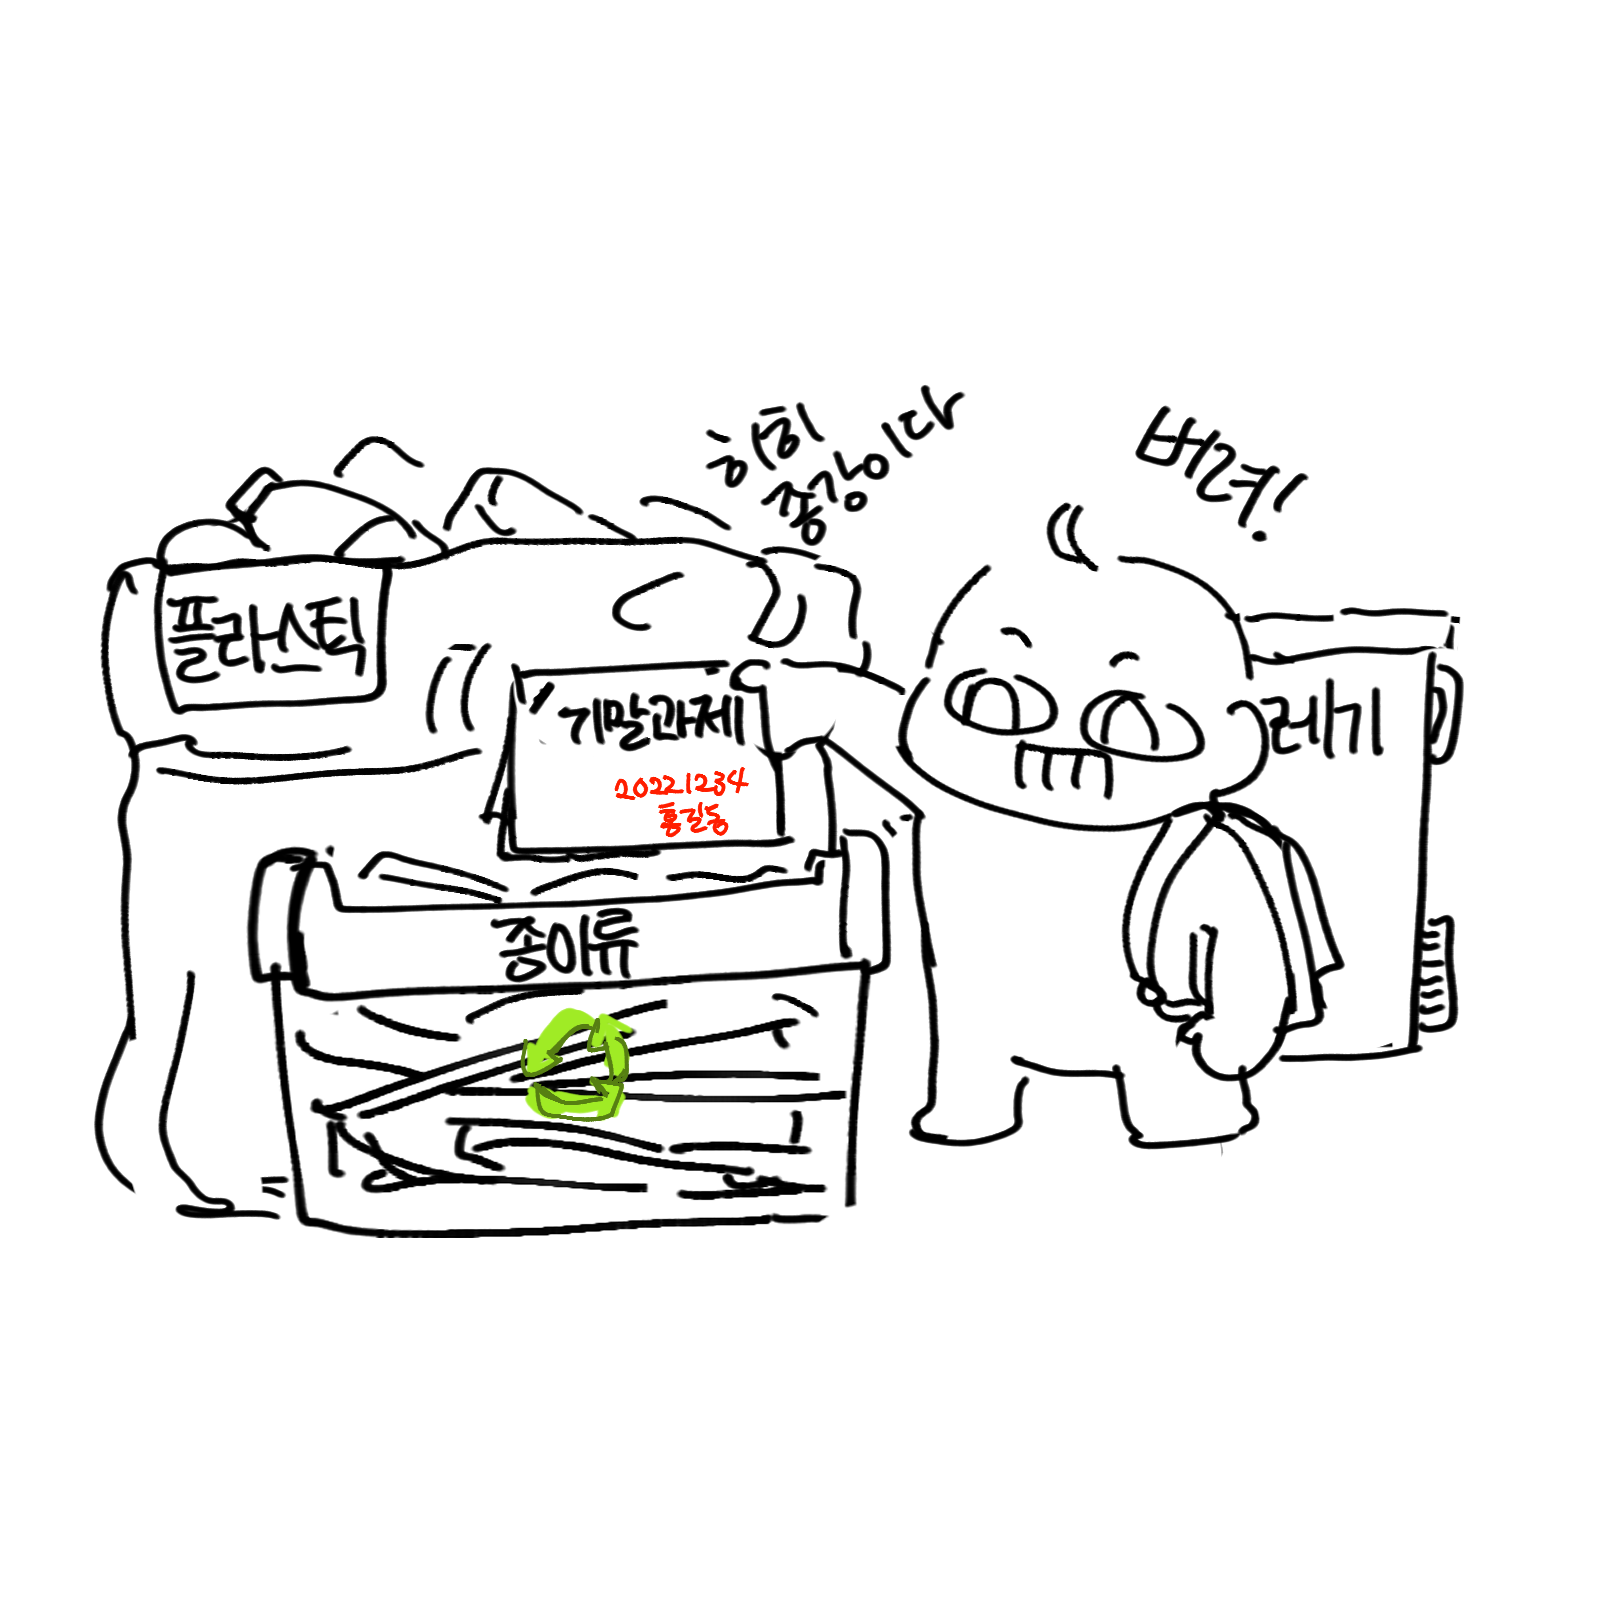 히히
종강이다
버려!
플라스틱
레기
기말과제
20221234
홍길동
종이류